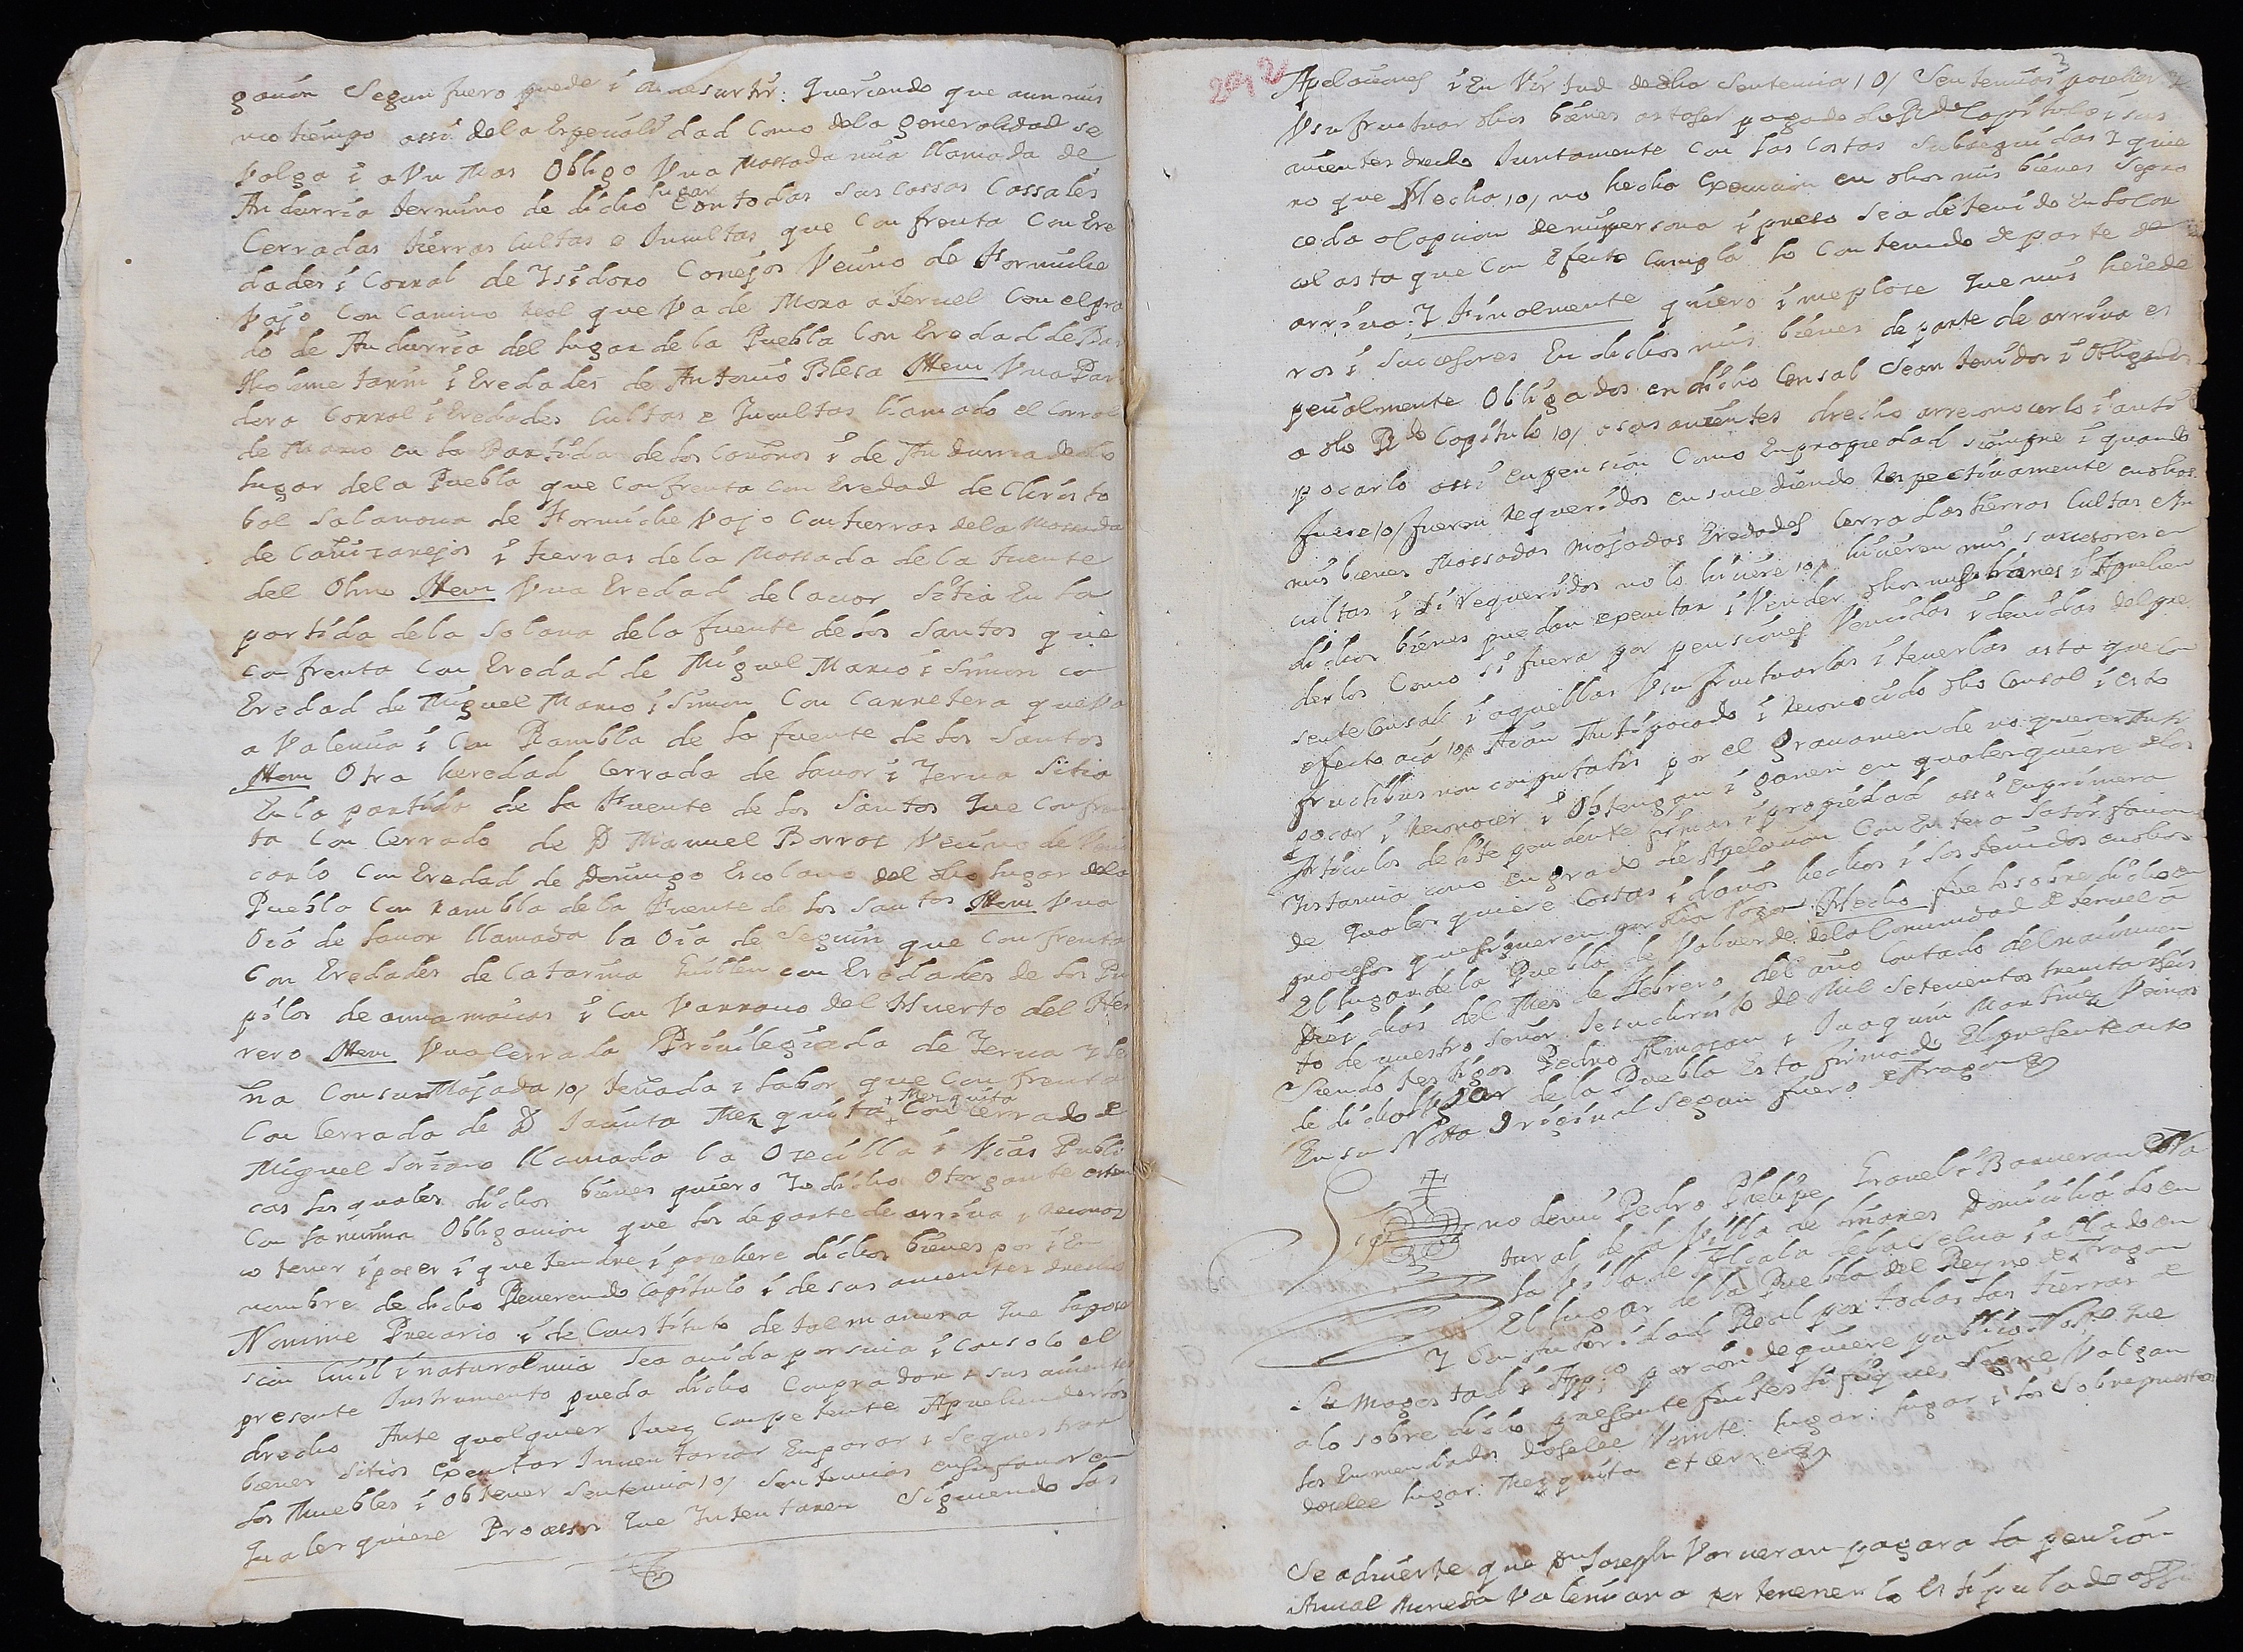 gacion Segun fuero puede i deve surtir: queriendo que a un mis
mo tiempo assi dela Especialidad Como dela generalidad se
Valga i a Vn Mas Obligo Vna Massada mia llamada de
Andurria termino de dicho lugar Con todas sus cassas Cassales
Cerradas tierras Cultas e Incultas que Confrenta Con Ere
dades i Corral de Isidoro Conejos Vecino de Formiche
Vajo Con Camino Real que Va de Mora a Teruel Con el pra
do de Andurria del lugar de la Puebla Con Eredad de Bar
tholome tarin i Eredades de Antonio Blesa Item Vna Pari
dera Corral i Eredades Cultas e Incultas llamado el Corral
de Marco en la Partida de los i de Andurria de dho
lugar dela Puebla que Confrenta Con Eredad de Christo
bal Salanova de Formiche Vajo Con tierras dela Massada
de Cañizarejos i tierras de la Massada de la fuente
del Olmo Item Vna Eredad de lavor Sitia En la
partida dela Solana dela fuente de los Santos que
confrenta Con Eredad de Miguel Marco i Simon co
Eredad de Miguel Marco i Simon Con Carretera que Va
a Valencia i Con Rambla de la fuente de los Santos
Item Otra heredad Cerrada de lavor i Yerva Sitia
En la partida de la Fuente de los Santos que Confren
ta Con Cerrado de D Manuel Borras Vecino de
carlo Con Eredad de Domingo Escolano del dho lugar dela
Puebla Con rambla dela Fuente de los Santos Item Vna
Oia de lavor llamada la Oia de Seguin que Confrenta
Con Eredades de Catarina Guillen con Eredades de los Pu
pilos de i Con Varranco del Huerto del Her
rero Item Vna Cerrada Privilegiada de Yerva y le
ña Con su Majada /o/ teñada i labor que Confrenta
Con Cerrada de D Jacinta Mezquita + Mezquita + Con Cerrado de
Miguel Soriano llamada la Ozecilla i Vias Publi
cas los quales dichos bienes quiero Yo dicho Otorgante esten
Con la misma Obligacion que los de parte de arriva i reconoz
co tener i poseer i que tendre i posehere dichos bienes por i En
nombre de dicho Reverendo Capitulo i de sus avientes drecho
Nomine Precario i de Constituto de tal manera que la pose
sion Civil i natural mia sea avida por suia i Con solo el
presente Instrumento pueda dicho Comprador i sus avientes
drecho Ante qualquier Juez Competente Aprehender los
bienes sitios Executar Inventariar Emparar i Sequestrar
los Muebles i Obtener Sentencia /o/ Sentencias en su favor en
qualesquiere Processos que Intentaren Siguiendo las
2092
Apelaciones i En Virtud de dha Sentencia /o/ Sentencias posehier i
Vsufructuar dhos bienes asta ser pagado dho Rdo Capitulo i sus
avientes drecho Iuntamente Con las Costas subseguidas Y que
no que Hecha /o/ no hecha Execucion en dhos mis bienes se pro
ceda a Capcion de mi persona i preso sea detenido En la Car
cel asta que Con Efecto Cumpla lo Contenido de parte de
arriva: Y Finalmente quiero i me plaze que mis herede
ros i Sucesores En dichos mis bienes de parte de arriva es
pecialmente Obligados en dicho Censal Sean tenidos i Obligados
a dho Rdo Capitulo /o/ a sus avientes drecho a reconocerlo i anti
pocarlo assi en pension Como En propiedad siempre i quando
fuere /o/ fueren requeridos en sucediendo respectivamente en dhos
mis bienes Massadas Majadas Eredades Cerradas tierras Cultas e In
cultas i si requeridos no lo hiciere /o/ hicieren mis sucesores en
dichos bienes puedan executar i Vender dhos mis bienes i Aprehen
derlos Como si fuera por pensiones Vencidas i devidas del pre
sente Censal i aquellas Vsufructuarlas i tenerlas asta que Con
efecto aia /o/ Aian Antipocado i reconocido dho Censal i esto
fructibus non computatis por el gravamen de no querer Anti
pocar i reconocer i Obtengan i ganen en qualesquiere dlos
Articulos de lite pendente firmas i propiedad assi En primera
Instancia como en grado de Apelacion Con Entera Satisfacion
de qualesquiere Costas i daños hechos i sostenidos en dhos
procesos que siguieren por dha Razon: Hecho fue lo sobredicho en
El lugar dela Puebla de Valverde dela Comunidad de Teruel a
dies dias del Mes de Febrero del año Contado del nacimien
to de nuestro Señor Jesuchristo de Mil Setecientos treinta i seis
Siendo testigos Pedro Almazan i Joaquin Martinez Vecinos
de dicho lugar de la Puebla Esta firmado El presente acto
En su Notta Original Segun fuero de Aragon
Sig no de mi Pedro Phelipe Gravel i Barveran Na
tural de la Villa de Linares Domiciliado en
la Villa de Alcala dela Selva i allado en
El lugar de la Puebla del Reyno de Aragon
Y Con Autoridad Real por todas las tierras de
Su Magestad i App.ca por donde quiere publico Notro que
a lo sobredicho presente fui testifique signe Valgan
los Enmendados: doselee Veinte: lugar: lugar i los Sobrepuestos
doselee lugar: Mezquita et Cerre
Se advierte que Dn Joseph Varveran pagara la pension
Anual Moneda Valenciana por tenerlo Estipulado assi